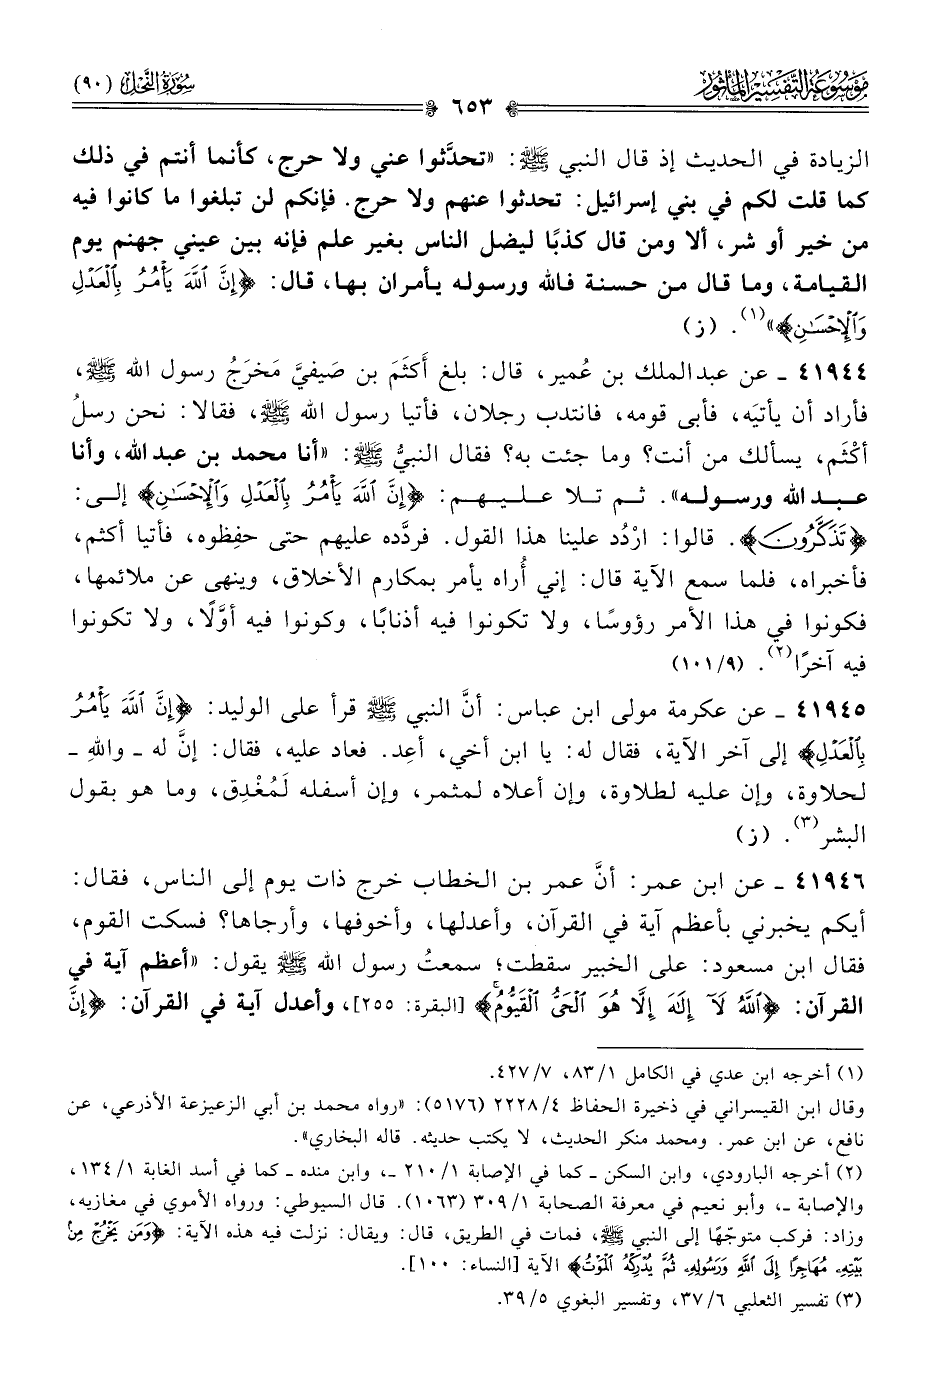 موسوعة التفسير المأثور
سورة النحل (٩٠)
٦٥٣
الزيادة في الحديث إذ قال النبي ﷺ: «تحدَّثوا عني ولا حرج، كأنما أنتم في ذلك
كما قلت لكم في بني إسرائيل: تحدثوا عنهم ولا حرج. فإنكم لن تبلغوا ما كانوا فيه
من خير أو شر، ألا ومن قال كذبًا ليضل الناس بغير علم فإنه بين عيني جهنم يوم
القيامة، وما قال من حسنة فالله ورسوله يأمران بها، قال: ﴿إِنَّ ٱللَّهَ يَأْمُرُ بِٱلْعَدْلِ
وَٱلْإِحْسَٰنِ﴾»(١). (ز)
٤١٩٤٤ ـ عن عبدالملك بن عُمير، قال: بلغ أَكثَمَ بن صَيفيَّ مَخرَجُ رسول الله ﷺ،
فأراد أن يأتيَه، فأبى قومه، فانتدب رجلان، فأتيا رسول الله ﷺ، فقالا: نحن رسلُ
أكْثَم، يسألك من أنت؟ وما جئت به؟ فقال النبيُّ ﷺ: «أنا محمد بن عبد الله، وأنا
عبد الله ورسوله». ثم تلا عليهم: ﴿إِنَّ ٱللَّهَ يَأْمُرُ بِٱلْعَدْلِ وَٱلْإِحْسَٰنِ﴾ إلى:
﴿تَذَكَّرُونَ﴾. قالوا: ارْدُد علينا هذا القول. فردَّده عليهم حتى حفِظوه، فأتيا أكثم،
فأخبراه، فلما سمع الآية قال: إني أُراه يأمر بمكارم الأخلاق، وينهى عن ملائمها،
فكونوا في هذا الأمر رؤوسًا، ولا تكونوا فيه أذنابًا، وكونوا فيه أوَّلًا، ولا تكونوا
فيه آخرًا(٢). (١٠١/٩)
٤١٩٤٥ ـ عن عكرمة مولى ابن عباس: أنَّ النبي ﷺ قرأ على الوليد: ﴿إِنَّ ٱللَّهَ يَأْمُرُ
بِٱلْعَدْلِ﴾ إلى آخر الآية، فقال له: يا ابن أخي، أعِد. فعاد عليه، فقال: إنَّ له ـ واللهِ ـ
لحلاوة، وإن عليه لطلاوة، وإن أعلاه لمثمر، وإن أسفله لَمُغْدِق، وما هو بقول
البشر(٣). (ز)
٤١٩٤٦ ـ عن ابن عمر: أنَّ عمر بن الخطاب خرج ذات يوم إلى الناس، فقال:
أيكم يخبرني بأعظم آية في القرآن، وأعدلها، وأخوفها، وأرجاها؟ فسكت القوم،
فقال ابن مسعود: على الخبير سقطت؛ سمعتُ رسول الله ﷺ يقول: «أعظم آية في
القرآن: ﴿ٱللَّهُ لَآ إِلَٰهَ إِلَّا هُوَ ٱلْحَىُّ ٱلْقَيُّومُ﴾ [البقرة: ٢٥٥]، وأعدل آية في القرآن: ﴿إِنَّ
(١) أخرجه ابن عدي في الكامل ٨٣/١، ٤٢٧/٧.
وقال ابن القيسراني في ذخيرة الحفاظ ٢٢٢٨/٤ (٥١٧٦): «رواه محمد بن أبي الزعيزعة الأذرعي، عن
نافع، عن ابن عمر. ومحمد منكر الحديث، لا يكتب حديثه. قاله البخاري».
(٢) أخرجه البارودي، وابن السكن ـ كما في الإصابة ٢١٠/١ ـ، وابن منده ـ كما في أسد الغابة ١٣٤/١،
والإصابة ـ، وأبو نعيم في معرفة الصحابة ٣٠٩/١ (١٠٦٣). قال السيوطي: ورواه الأموي في مغازيه،
وزاد: فركب متوجّهًا إلى النبي ﷺ، فمات في الطريق، قال: ويقال: نزلت فيه هذه الآية: ﴿وَمَن يَخْرُجْ مِنۢ
بَيْتِهِۦ مُهَاجِرًا إِلَى ٱللَّهِ وَرَسُولِهِۦ ثُمَّ يُدْرِكْهُ ٱلْمَوْتُ﴾ الآية [النساء: ١٠٠].
(٣) تفسير الثعلبي ٣٧/٦، وتفسير البغوي ٣٩/٥.